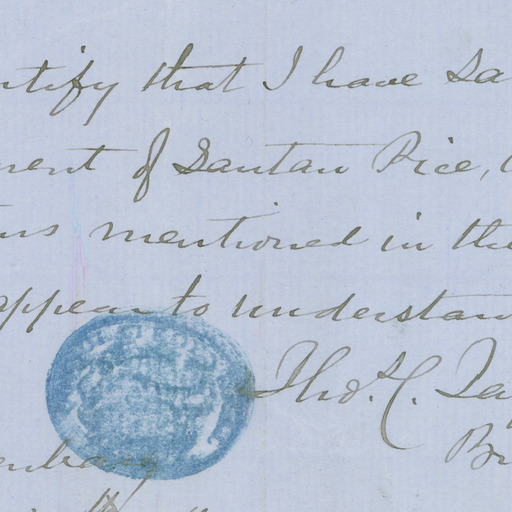 ntify that I have Sa
ment of Santan Rice,
ns mentioned in the
appear to understan
Thos. C. Tay
Br